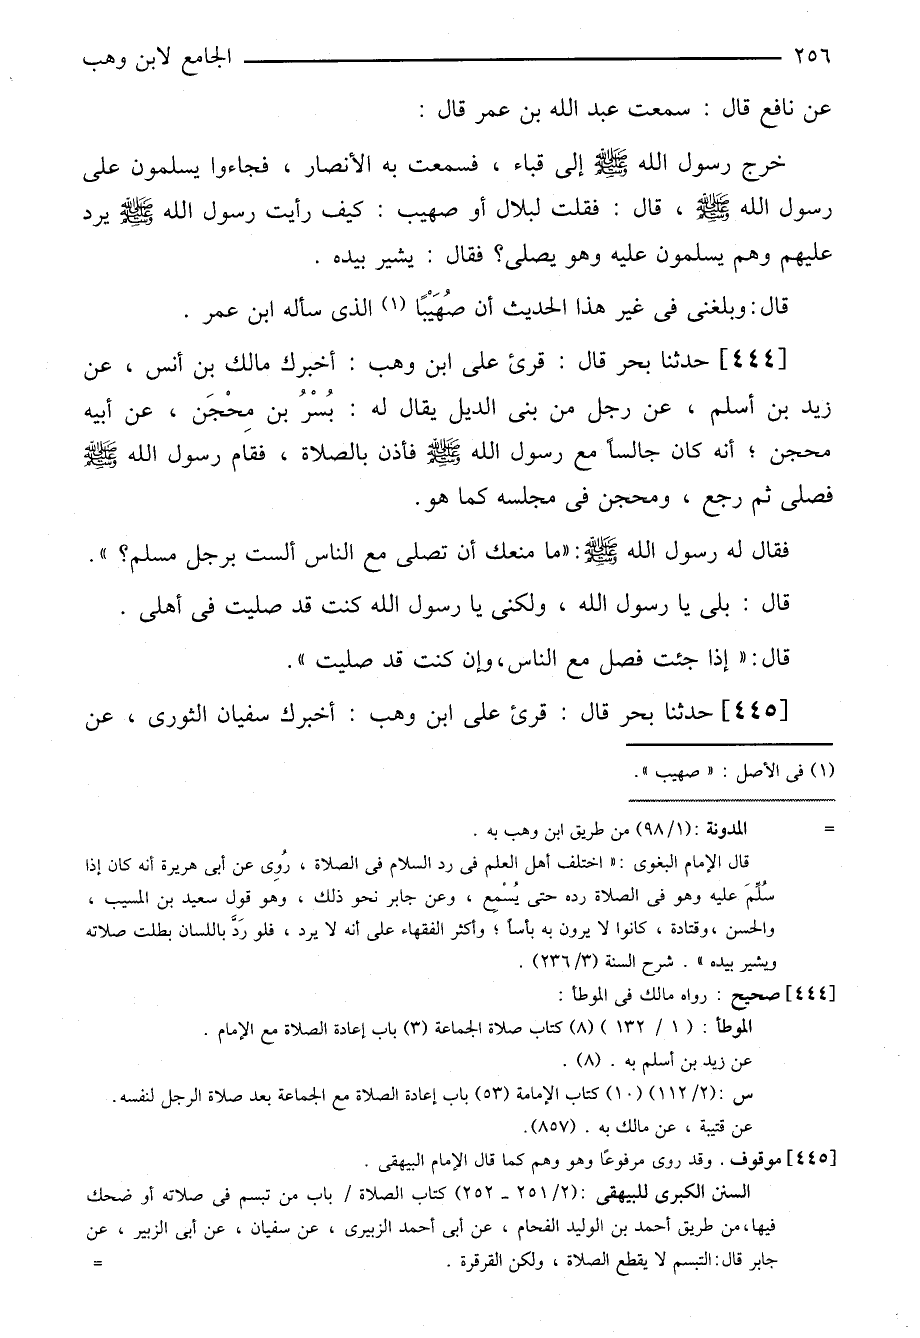 ٢٥٦ الجامع لابن وهب
عن نافع قال : سمعت عبد الله بن عمر قال :
خرج رسول الله ﷺ إلى قباء ، فسمعت به الأنصار ، فجاءوا يسلمون على
رسول الله ﷺ ، قال : فقلت لبلال أو صهيب : كيف رأيت رسول الله ﷺ يرد
عليهم وهم يسلمون عليه وهو يصلى؟ فقال : يشير بيده .
قال : وبلغنى فى غير هذا الحديث أن صُهَيْبًا (١) الذى سأله ابن عمر .
[٤٤٤] حدثنا بحر قال : قرئ على ابن وهب : أخبرك مالك بن أنس ، عن
زيد بن أسلم ، عن رجل من بنى الديل يقال له : بُسْرُ بن مِحْجَن ، عن أبيه
محجن ؛ أنه كان جالساً مع رسول الله ﷺ فأذن بالصلاة ، فقام رسول الله ﷺ
فصلى ثم رجع ، ومحجن فى مجلسه كما هو .
فقال له رسول الله ﷺ : «ما منعك أن تصلى مع الناس ألست برجل مسلم؟ ».
قال : بلى يا رسول الله ، ولكنى يا رسول الله كنت قد صليت فى أهلى .
قال : « إذا جئت فصل مع الناس، وإن كنت قد صليت ».
[٤٤٥] حدثنا بحر قال : قرئ على ابن وهب : أخبرك سفيان الثورى ، عن
(١) فى الأصل : « صهيب ».
= المدونة : (١/ ٩٨) من طريق ابن وهب به .
قال الإمام البغوى : « اختلف أهل العلم فى رد السلام فى الصلاة ، رُوِى عن أبى هريرة أنه كان إذا
سُلِّمَ عليه وهو فى الصلاة رده حتى يُسْمِع ، وعن جابر نحو ذلك ، وهو قول سعيد بن المسيب ،
والحسن ، وقتادة ، كانوا لا يرون به بأساً ؛ وأكثر الفقهاء على أنه لا يرد ، فلو ردَّ باللسان بطلت صلاته
ويشير بيده » . شرح السنة (٣/ ٢٣٦) .
[٤٤٤] صحيح : رواه مالك فى الموطأ :
الموطأ : ( ١ / ١٣٢ ) (٨) كتاب صلاة الجماعة (٣) باب إعادة الصلاة مع الإمام .
عن زيد بن أسلم به . (٨) .
س : (٢/ ١١٢) (١٠) كتاب الإمامة (٥٣) باب إعادة الصلاة مع الجماعة بعد صلاة الرجل لنفسه .
عن قتيبة ، عن مالك به . (٨٥٧).
[٤٤٥] موقوف . وقد روى مرفوعًا وهو وهم كما قال الإمام البيهقى .
السنن الكبرى للبيهقى : (٢/ ٢٥١ ـ ٢٥٢) كتاب الصلاة / باب من تبسم فى صلاته أو ضحك
فيها، من طريق أحمد بن الوليد الفحام ، عن أبى أحمد الزبيرى ، عن سفيان ، عن أبى الزبير ، عن
جابر قال : التبسم لا يقطع الصلاة ، ولكن القرقرة . =